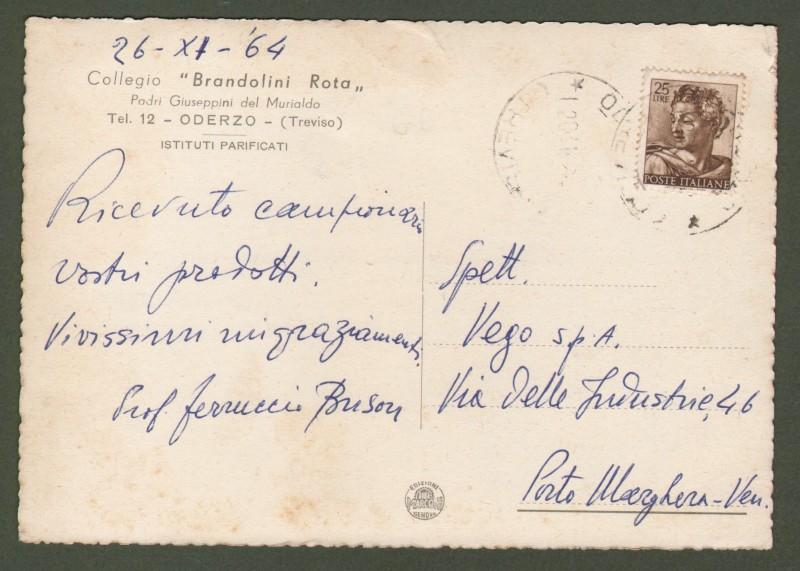 26-XI-'64
Collegio "Brandolini Rota"
Padri Giuseppini del Murialdo
Tel. 12 - ODERZO - (Treviso)
ISTITUTI PARIFICATI
Ricevuto campionario
vostri prodotti.
Vivissimi ringraziamenti.
Prof. Ferruccio Brison
25
LIRE
POSTE ITALIANE
Spett.
Vego s.p.A.
Via Delle Industrie, 46
Porto Marghera-Ven.
EDIZIONI
GENOVA